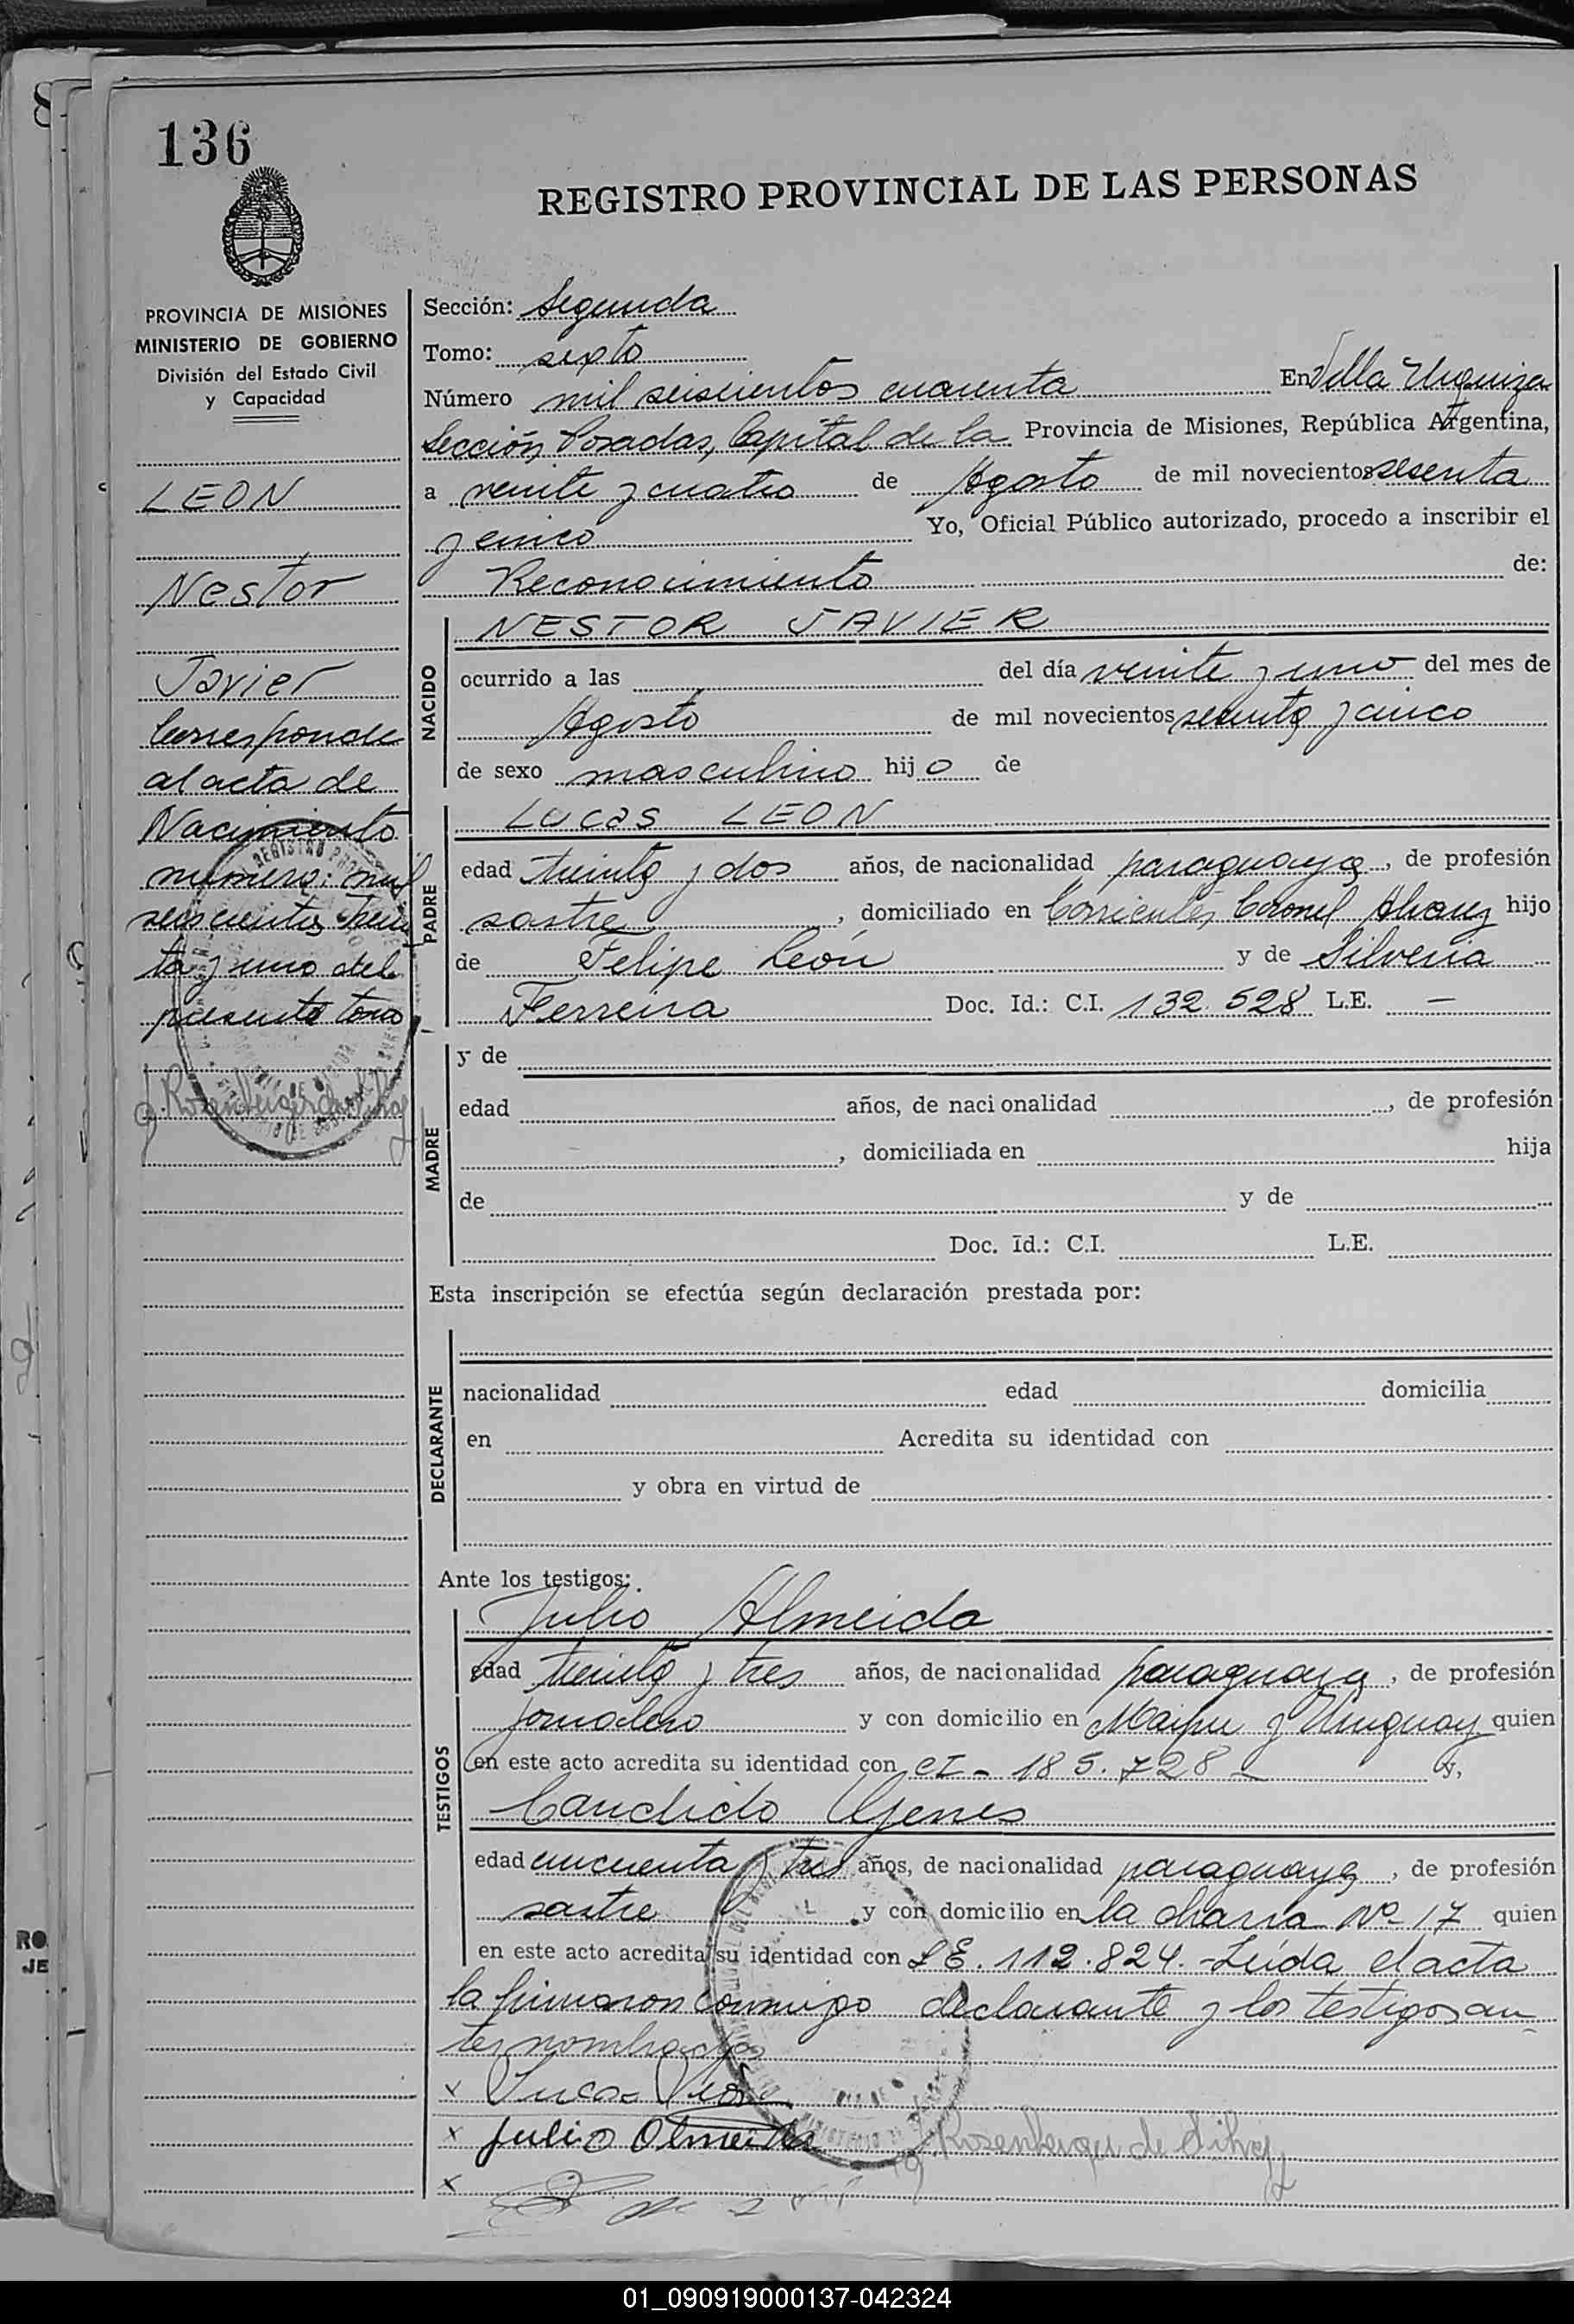 136
REGISTRO PROVINCIAL DE LAS PERSONAS
PROVINCIA DE MISIONES
MINISTERIO DE GOBIERNO
División del Estado Civil
y Capacidad
LEON
Nestor
Javier
Corresponde
al acta de
Nacimiento
número: mil
seiscientos trein
ta y uno del
presente tomo
Sección: Segunda
Tomo: sexto
Número mil seiscientos cuarenta En Villa Urquiza
Sección, Posadas, Capital de la Provincia de Misiones, República Argentina,
a veinte y cuatro de Agosto de mil novecientos sesenta
y cinco Yo, Oficial Público autorizado, procedo a inscribir el
Reconocimiento de:
NACIDO
NESTOR JAVIER
ocurrido a las del día veinte y uno del mes de
Agosto de mil novecientos sesenta y cinco
de sexo masculino hijo de
PADRE
Lucas LEON
edad treinta y dos años, de nacionalidad paraguaya, de profesión
sastre, domiciliado en Corrientes, Coronel Alvarez hijo
de Felipe León y de Silveria
Ferreira Doc. Id.: C.I. 132.528 L.E. —
MADRE
y de
edad años, de nacionalidad , de profesión
, domiciliada en hija
de y de
Doc. Id.: C.I. L.E.
Esta inscripción se efectúa según declaración prestada por:
DECLARANTE
nacionalidad edad domicilia
en Acredita su identidad con
y obra en virtud de
Ante los testigos:
TESTIGOS
Julio Almeida
edad treinta y tres años, de nacionalidad paraguaya, de profesión
jornalero y con domicilio en Maipu y Uruguay quien
en este acto acredita su identidad con CI - 185.728 - y,
Candido Genes
edad cincuenta y tres años, de nacionalidad paraguaya, de profesión
sastre y con domicilio en la chacra Nº 17 quien
en este acto acredita su identidad con LE. 112.824. - Leída el acta
la firmaron conmigo declarante y los testigos an
tes nombrados
x Lucas León
x Julio Almeida
x
RO
JE
01_090919000137-042324